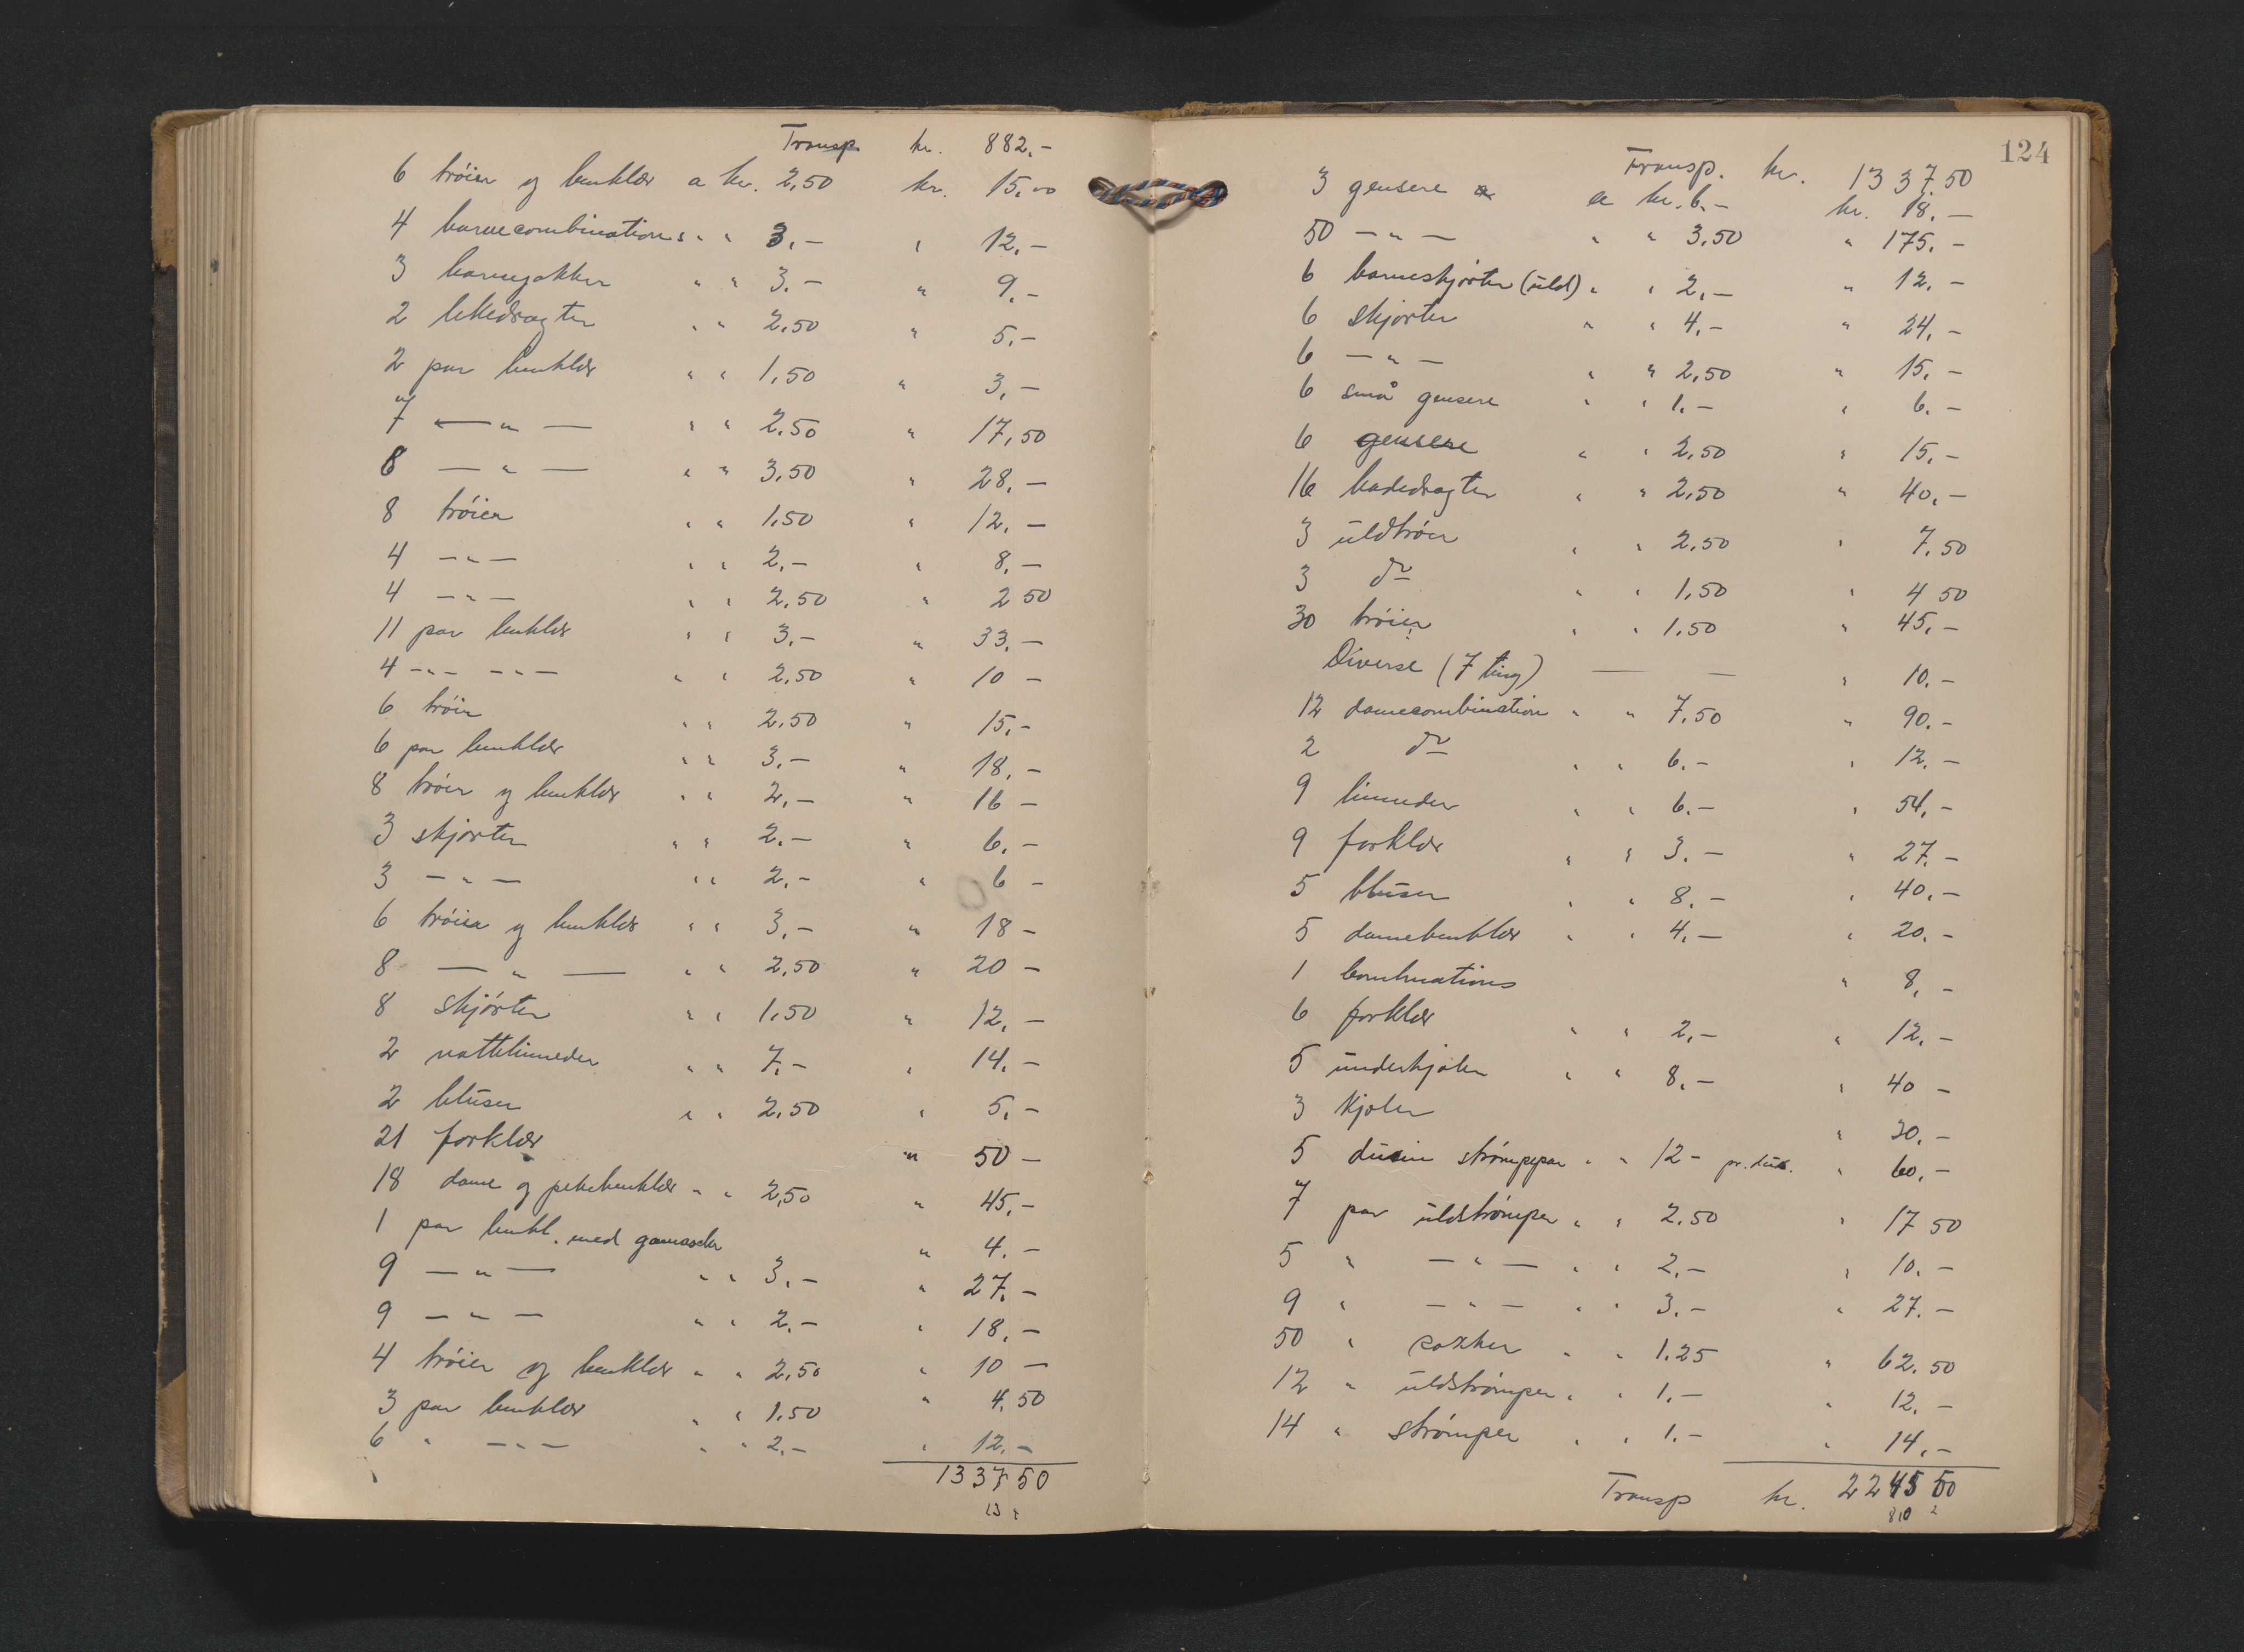 Transp. kr. 882.-
6 trøier og benklær a kr. 2,50 kr. 15.00
4 barnecombinations " " 3.- " 12.-
3 barnejakker " " 3.- " 9.-
2 lekedragter " " 2.50 " 5.-
2 par benklær " " 1,50 " 3,-
7 — " — " " 2.50 " 17,50
8 — " — " " 3,50 " 28.-
8 trøier " " 1.50 " 12.-
4 — " — " " 2.- " 8.-
4 — " — " " 2,50 " 2 50
11 par benklær " " 3.- " 33.-
4 -"- -"- " " 2,50 " 10 -
6 trøier " " 2.50 " 15.-
6 par benklær " " 3.- " 18.-
8 trøier og benklær " " 2.- " 16 -
3 skjorter " " 2.- " 6.-
3 — " — " " 2.- " 6 -
6 trøier og benklær " " 3.- " 18 -
8 — " — " " 2,50 " 20 -
8 skjørter " " 1.50 " 12.-
2 nattlinneder " " 7.- " 14.-
2 bluser " " 2,50 " 5.-
21 forklær " 50 -
18 dame og pikebenklær " " 2,50 " 45.-
1 par benkl. med gamascher " 4.-
9 — " — " " 3.- " 27.-
9 — " — " " 2.- " 18.-
4 trøier og benklær " " 2,50 " 10 -
3 par benklær " " 1.50 " 4.50
6 " — " — " " 2.- " 12.-
1337 50
13
124
Transp. kr. 1337.50
3 gensere a kr. 6.- kr. 18.-
50 — " — " " 3,50 " 175.-
6 barneskjorter (uld) " " 2,- " 12.-
6 skjorter " " 4.- " 24.-
6 — " — " " 2,50 " 15.-
6 små gensere " " 1.- " 6.-
6 gensere " " 2,50 " 15.-
16 badedragter " " 2,50 " 40.-
3 uldtrøier " " 2.50 " 7.50
3 do " " 1,50 " 4 50
30 trøier " " 1.50 " 45.-
Diverse (7 ting) — — " 10.-
12 damecombination " " 7.50 " 90.-
2 do " " 6.- " 12.-
9 linneder " " 6.- " 54.-
9 forklær " " 3.- " 27.-
5 bluser " " 8.- " 40.-
5 damebenklær " " 4.- " 20.-
1 combinations " 8,-
6 forklær " " 2,- " 12.-
5 underkjoler " " 8.- " 40 -
3 kjoler " 30.-
5 dusin strømpepar " " 12 - pr. dus. " 60.-
7 par uldstrømper " " 2.50 " 17 50
5 " — " — " " 2.- " 10.-
9 " — " — " " 3.- " 27.-
50 " sokker " " 1.25 " 62.50
12 " uldstrømper " " 1.- " 12.-
14 " strømper " " 1.- " 14.-
Transp kr. 2245 50